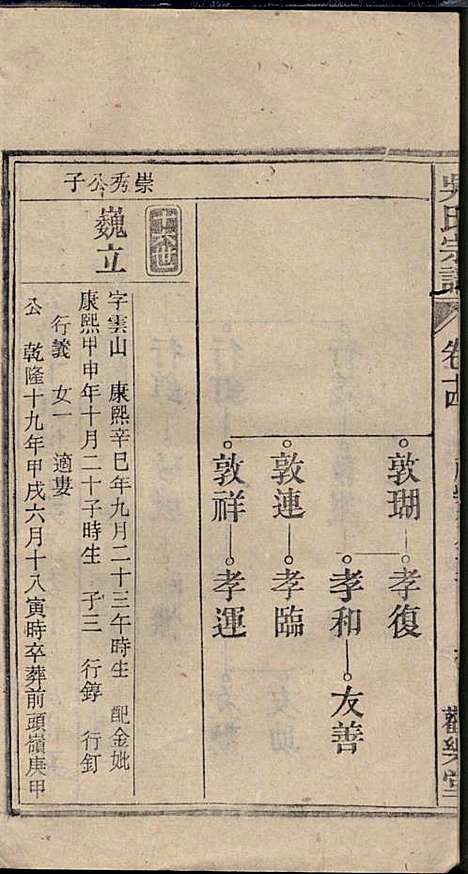 吳氏宗譜
卷十四
觀樂堂
敦瑚
孝復
孝和
友善
敦連
孝臨
敦祥
孝運
崇秀公子
巍立
字雲山 康熙辛巳年九月二十三午時生 配金妣
康熙甲申年十月二十子時生 子三 行錞 行釘
行義 女一 適婁
公 乾隆十九年甲戌六月十八寅時卒葬前頭嶺庚甲